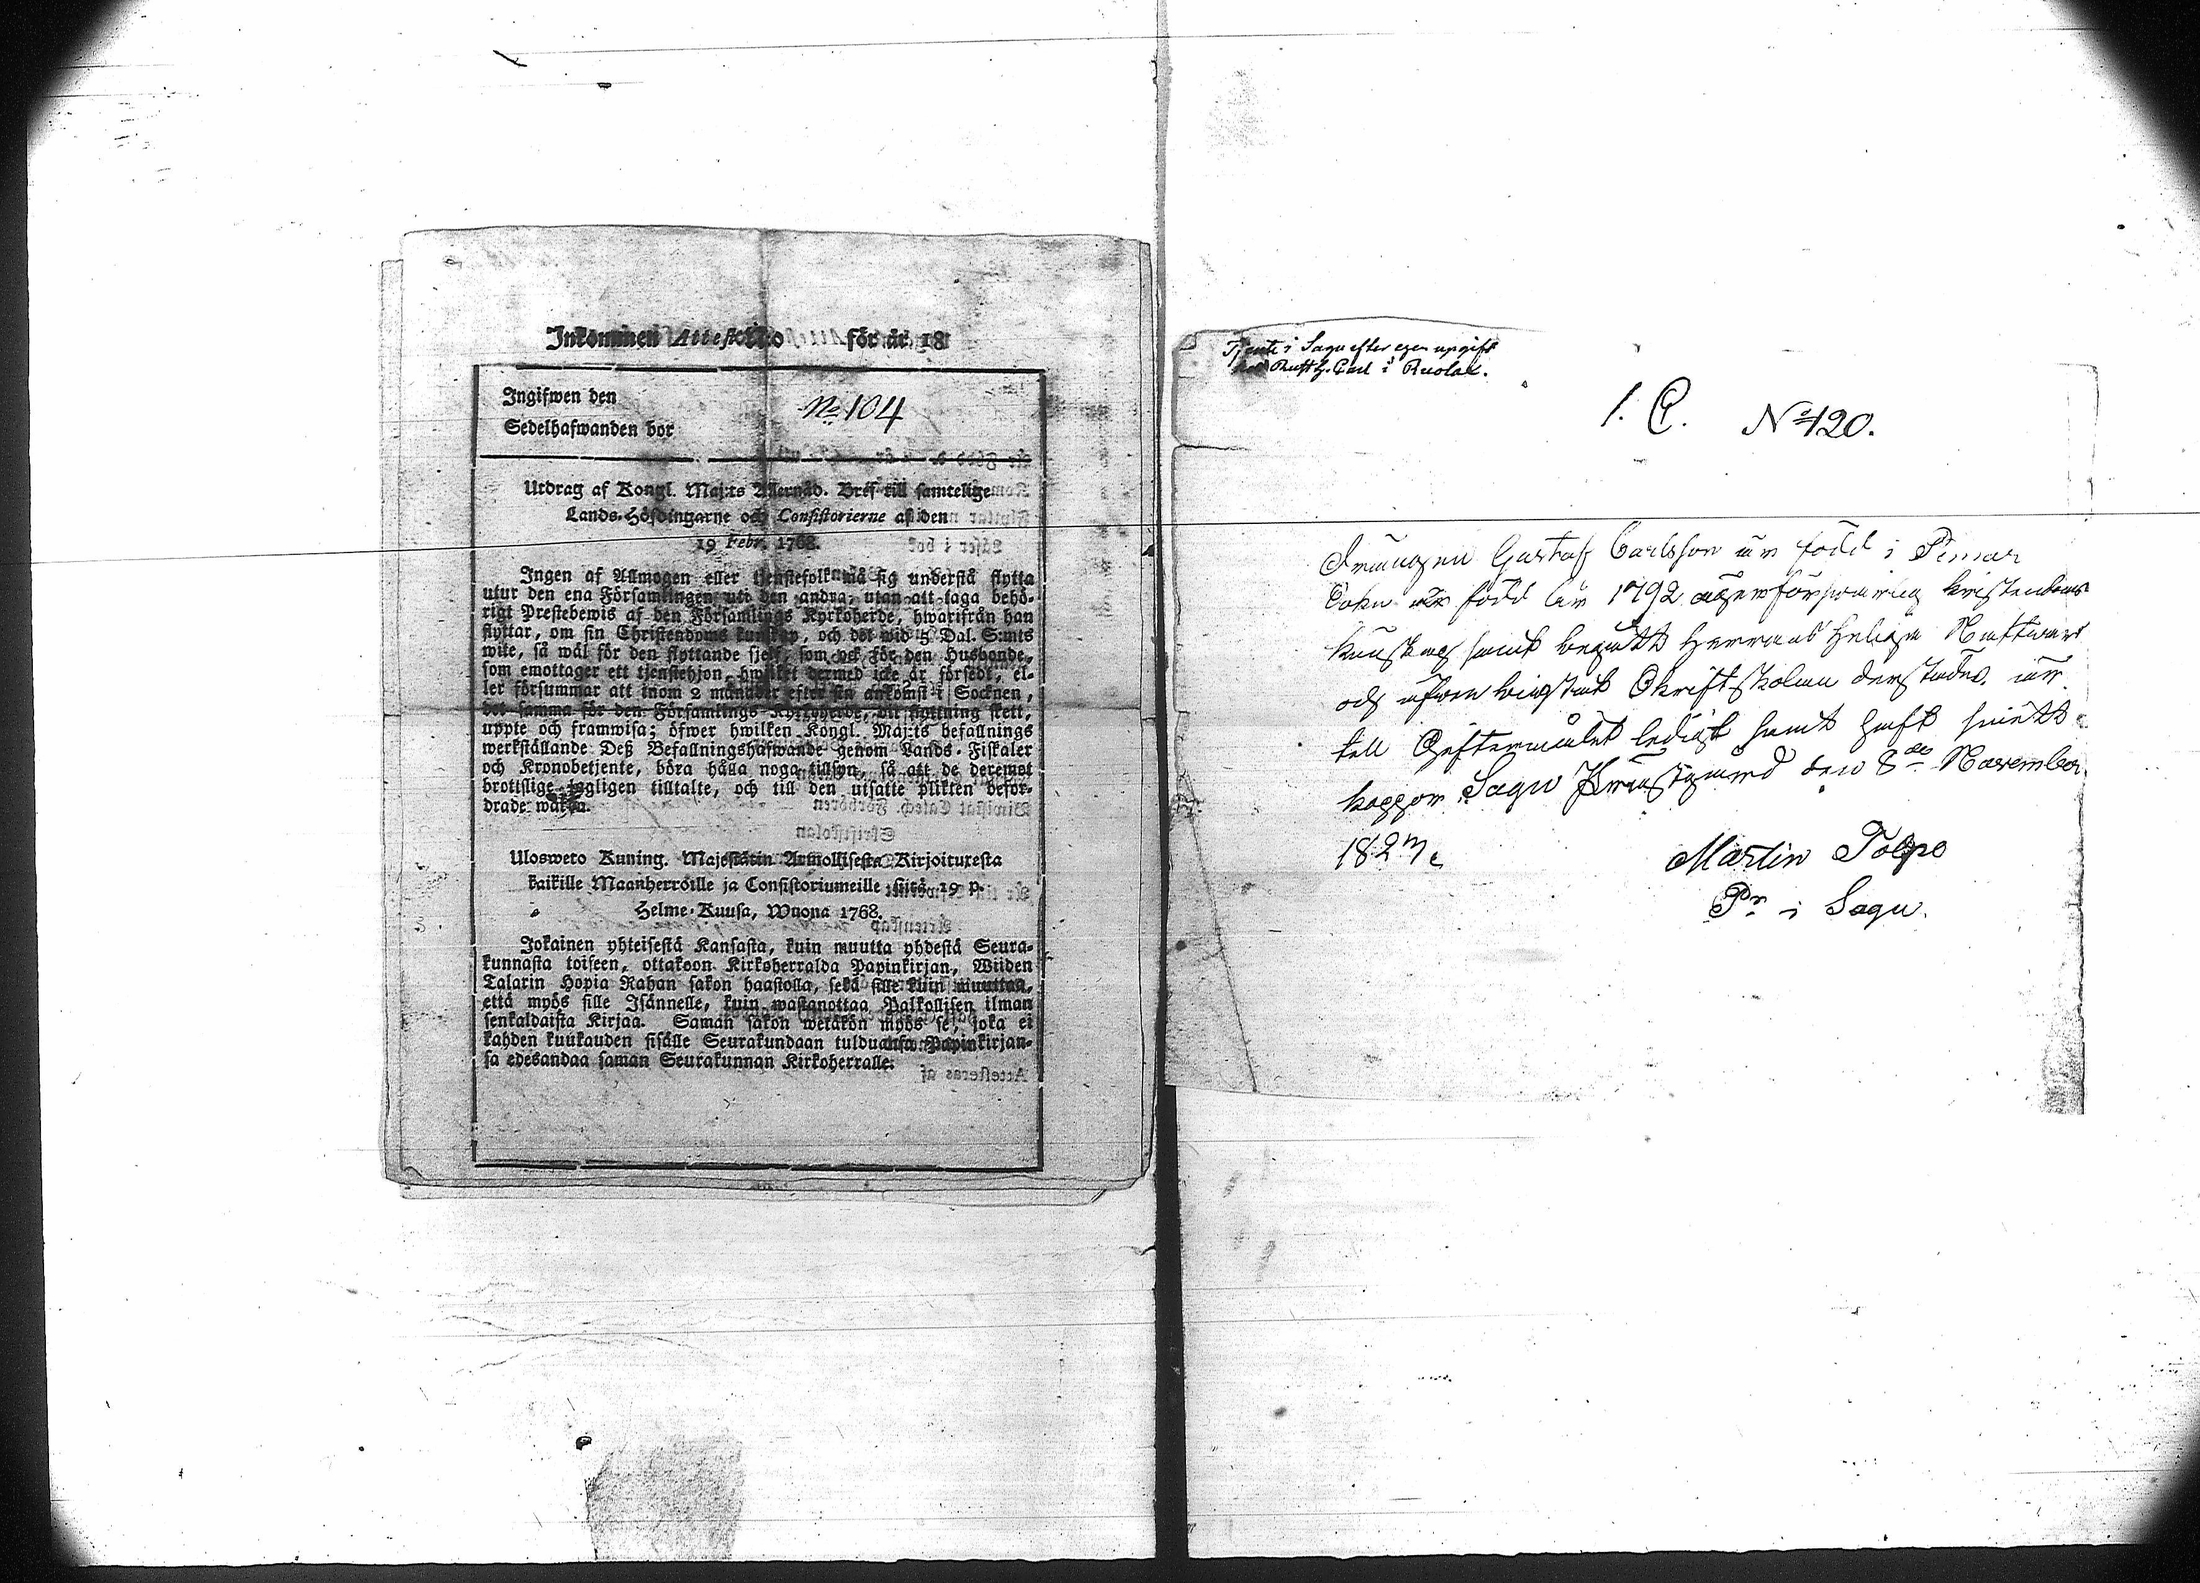 Inkommen Attest No för år 18
Ingifwen den
No 104
Sedelhafwanden bor
Utdrag af Kongl. Maj:ts Allernåd. Bref till samtelige
Lands-Höfdingarne och Consistorierne af den
19 Febr. 1768.
Ingen af Allmogen eller tjenstefolk må sig understå flytta
utur den ena Församlingen uti den andra, utan att taga behö-
rigt Prestebewis af den Församlings Kyrkoherde, hwarifrån han
flyttar, om sin Christendoms kunskap, och det wid 5 Dal. S:mts
wite, så wäl för den flyttande sjelf, som ock för den Husbonde,
som emottager ett tjenstehjon, hwilket dermed icke är försedt, el-
ler försummar att inom 2 månader efter sin ankomst i Socknen,
det samma för den Församlings Kyrkoherde, dit flyttning skett,
uppte och framwisa; öfwer hwilken Kongl. Maj:ts befallnings
werkställande Deß Befallningshafwande genom Lands-Fiskaler
och Kronobetjente, böra hålla noga tillsyn, så att de deremot
brottslige lagligen tilltalte, och till den utsatte plikten befor-
drade warda.
Ulosweto Kuning. Majestätin Armollisesta Kirjoituxesta
kaikille Maanherroille ja Consistoriumeille siitä 19 p.
Helme-Kuusa, Wuona 1768.
Jokainen yhteisestä Kansasta, kuin muutta yhdestä Seura-
kunnasta toiseen, ottakoon Kirkoherralda Papinkirjan, Wiiden
Talarin Hopia Rahan sakon haastolla, sekä sille kuin muuttaa,
että myös sille Isännelle, kuin wastanottaa Palkollisen ilman
senkaldaista Kirjaa. Saman sakon wetäkön myös se, joka ei
kahden kuukauden sisälle Seurakundaan tulduansa Papinkirjan-
sa edesandaa saman Seurakunnan Kirkoherralle.
Tjente i Sagu efter egen uppgift
hos Rusth. Carl i Ruola.
1. C. No 120.
Drängen Gustaf Carlsson är född i Pemar
Sokn är född år 1792 äger försvarlig kristendoms
kunskap samt begått Herrans Heliga Nattvard
och äfven bivistat Skriftskolan derstädes, är
till Giftermålet ledig samt haft
koppor Sagu Prästgård den 8de November
1827.
Martin Tolpo
Pr i Sagu.